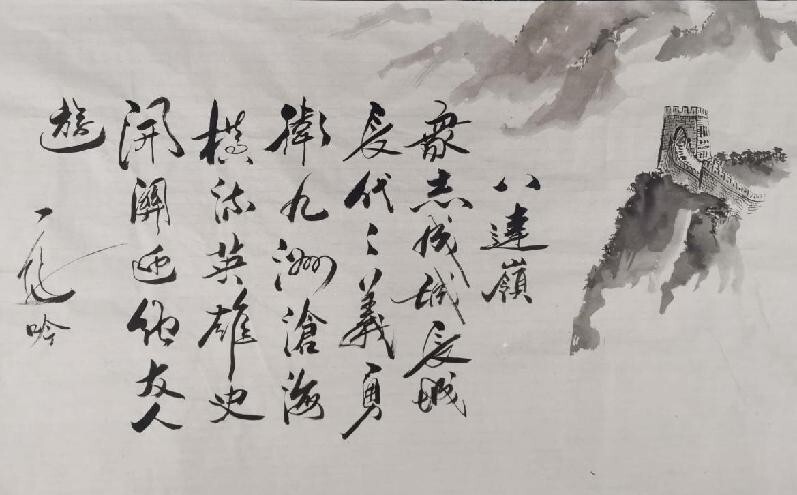 八達嶺
衆志成城長城
長代々義勇
衛九洲滄海
橫流英雄史
開關迎友人
遊
吟